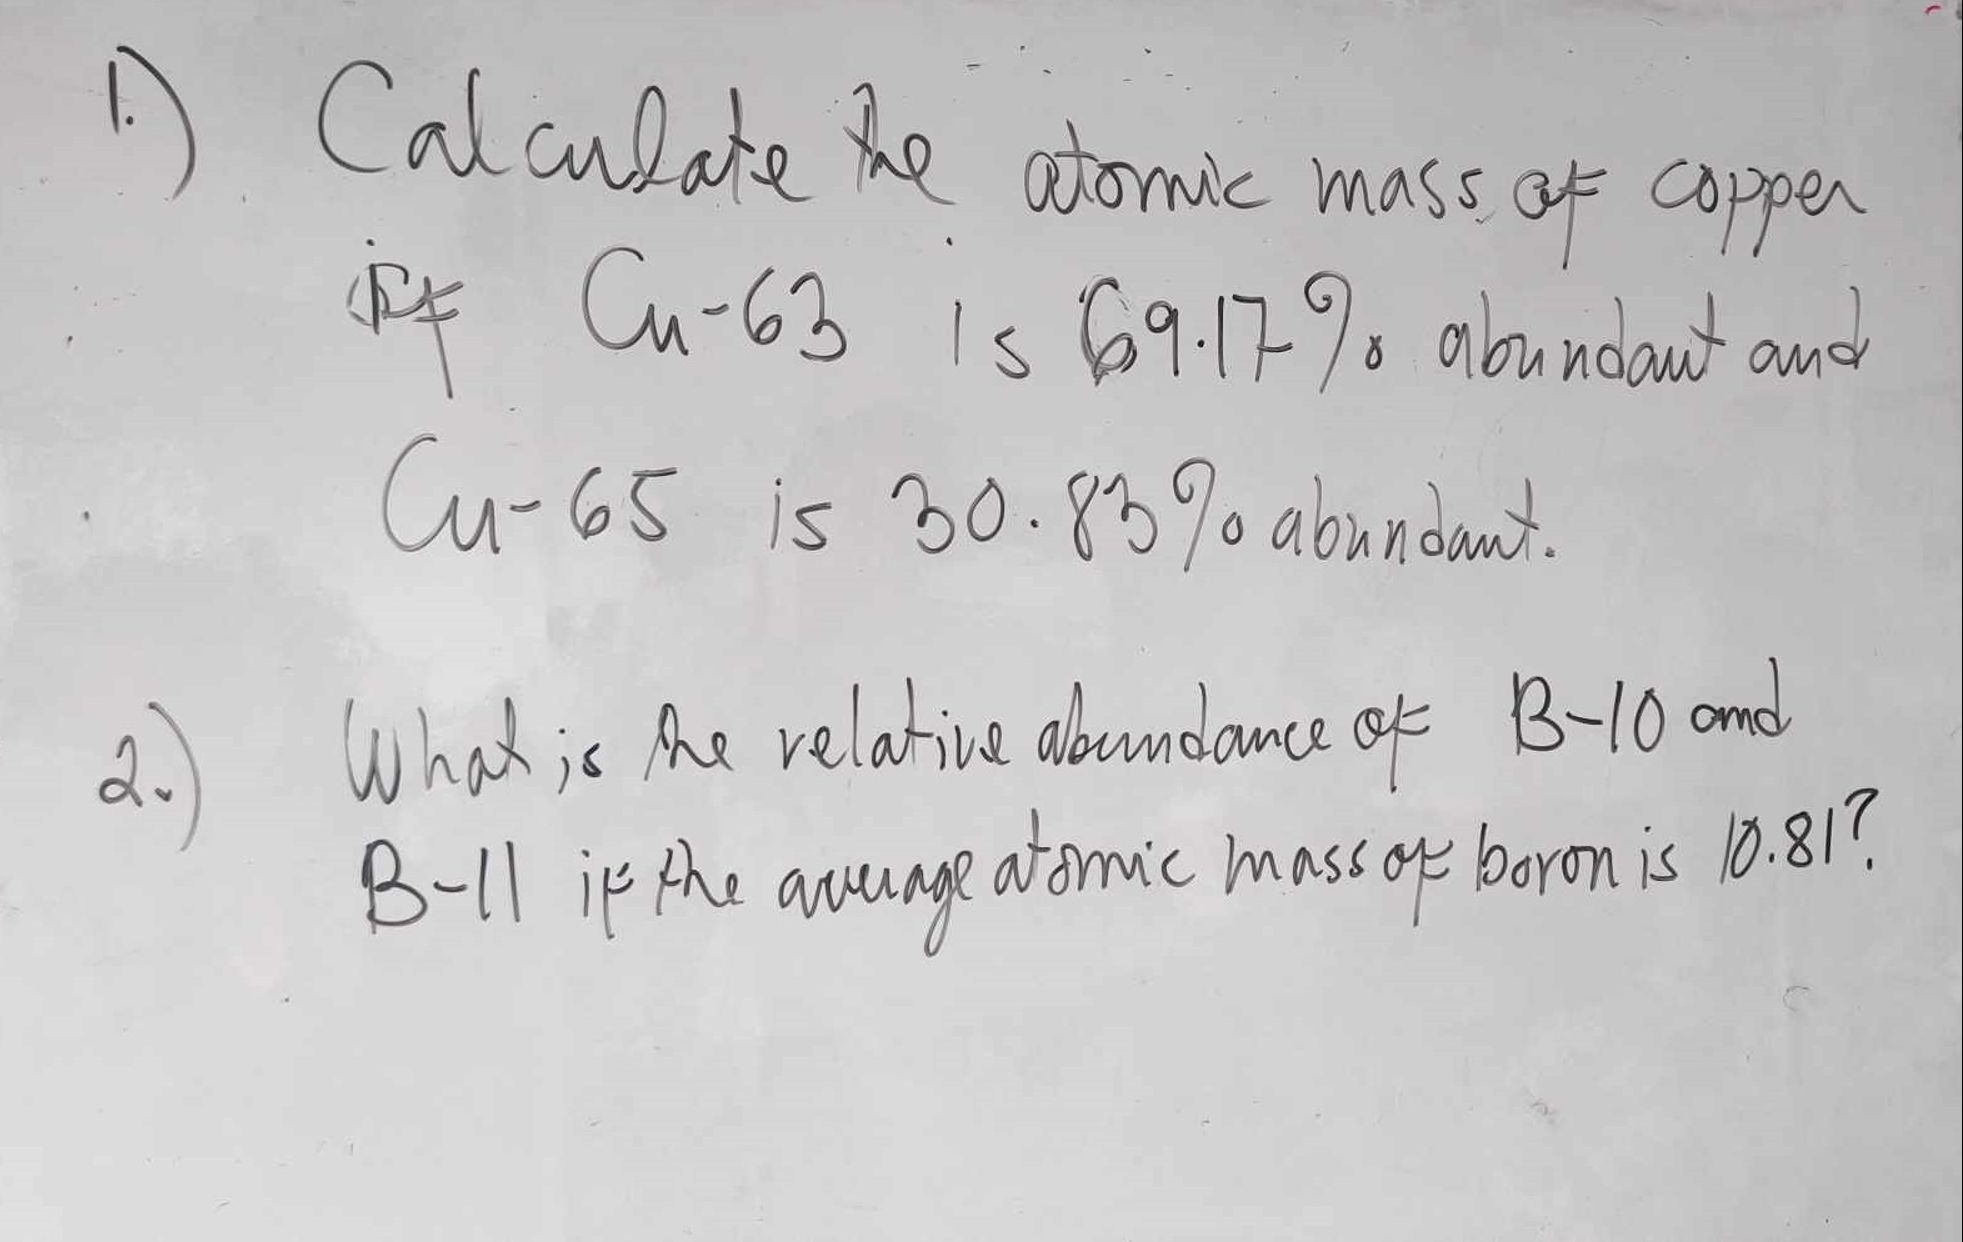 1.) Calculate the atomic mass of copper
if Cu-63 is 69.17% abundant and
Cu-65 is 30.83% abundant.
2.) What is the relative abundance of B-10 and
B-11 if the average atomic mass of boron is 10.81?